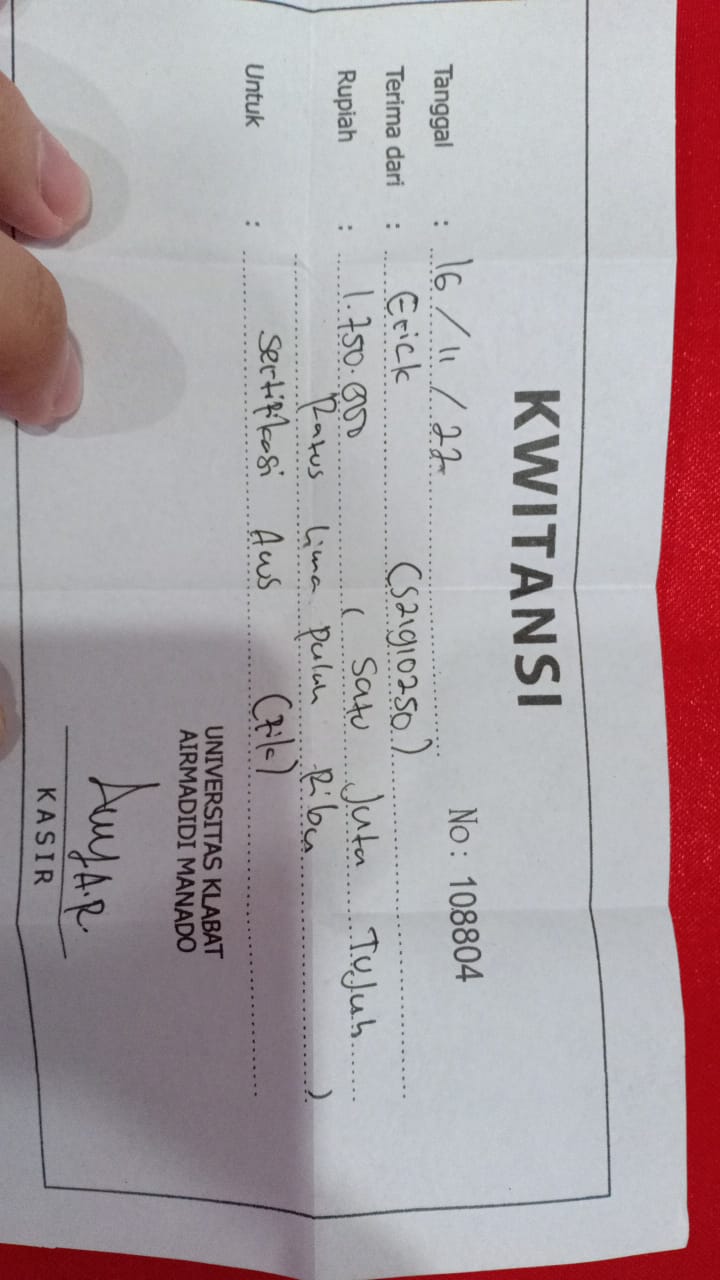 KWITANSI
No : 108804
Tanggal : 16 / 11 / 22
Terima dari : Erick (S21910250)
Rupiah : 1.750.000 ( Satu Juta Tujuh
Ratus lima puluh Ribu )
Untuk : Sertifikasi AWS
UNIVERSITAS KLABAT
AIRMADIDI MANADO
KASIR